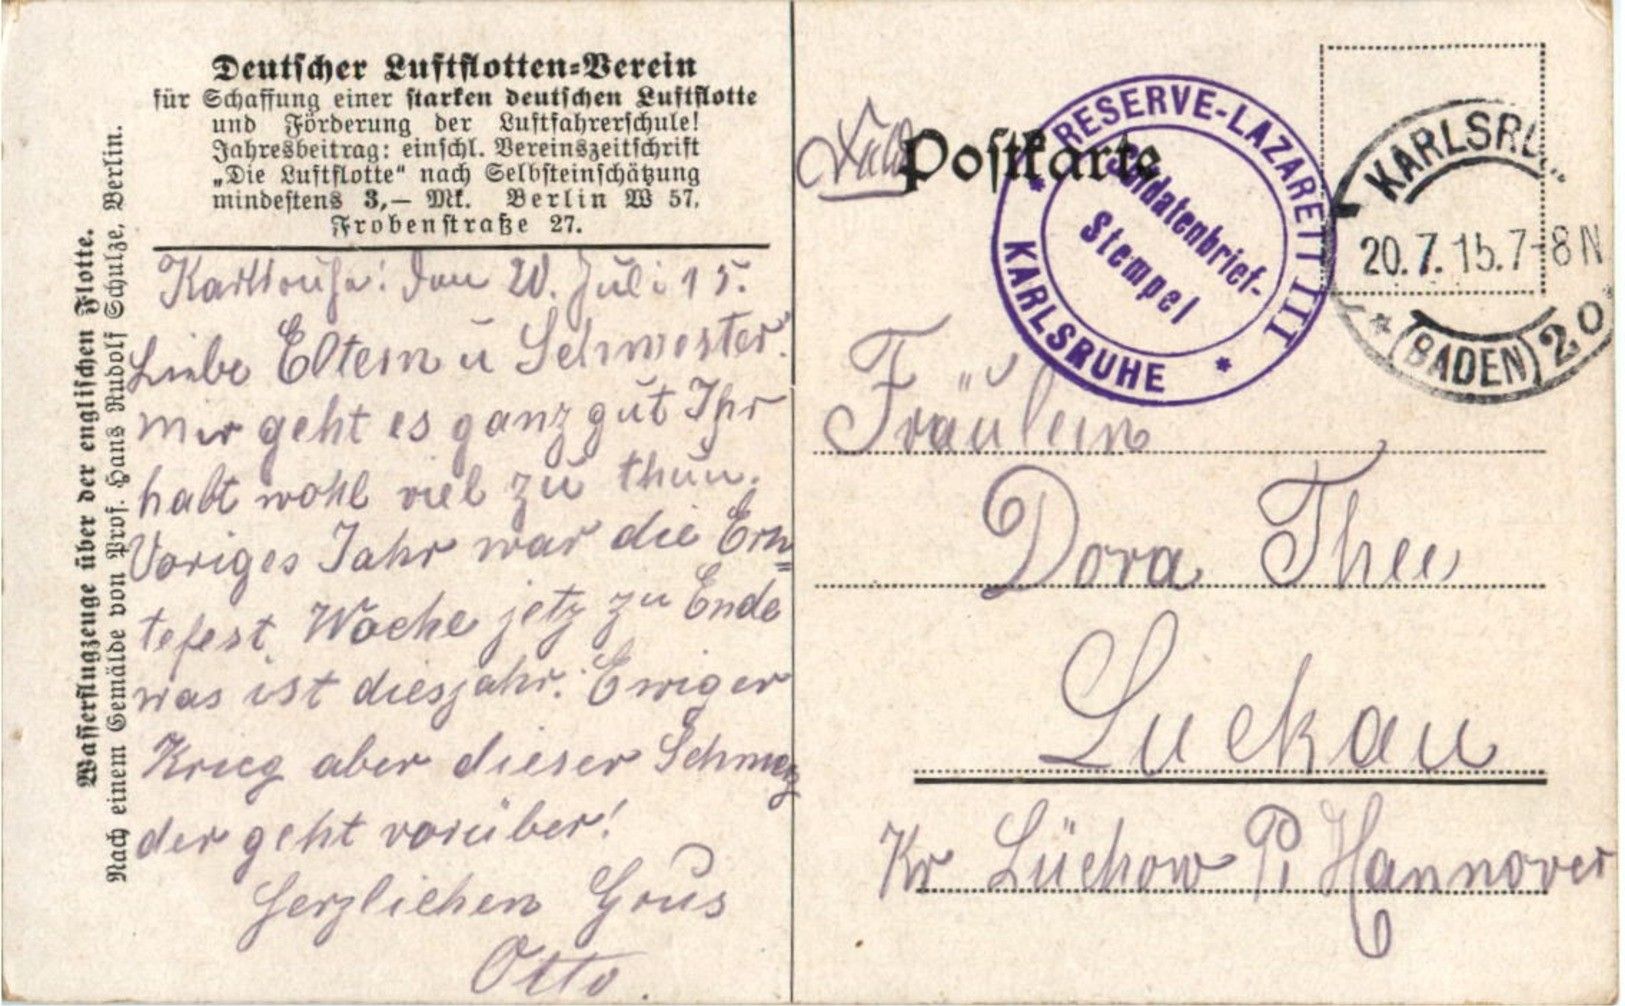 Deutscher Luftflotten-Verein
für Schaffung einer starken deutschen Luftflotte
und Förderung der Luftfahrerschule!
Jahresbeitrag: einschl. Vereinszeitschrift
„Die Luftflotte“ nach Selbsteinschätzung
mindestens 3,— Mk. Berlin W 57,
Frobenstraße 27.
Wasserflugzeuge über der englischen Flotte.
Nach einem Gemälde von Prof. Hans Rudolf Schulze, Berlin.
Karlsruhe: den 20. Juli 15.
Liebe Eltern u Schwester.
mir geht es ganz gut Ihr
habt wohl viel zu thun.
Voriges Jahr war die Ern=
tefest. Woche jetz zu Ende
was ist diesjahr. Ewiger
Krieg aber dieser Schmerz
der geht vorüber!
Herzlichen Grus
Otto.
Postkarte
RESERVE-LAZARETT III
KARLSRUHE
Soldatenbrief-
Stempel
KARLSRU
20.7.15.7-8N
* (BADEN) 20
Fräulein
Dora Thee
Luckau
Kr Lüchow P. Hannover